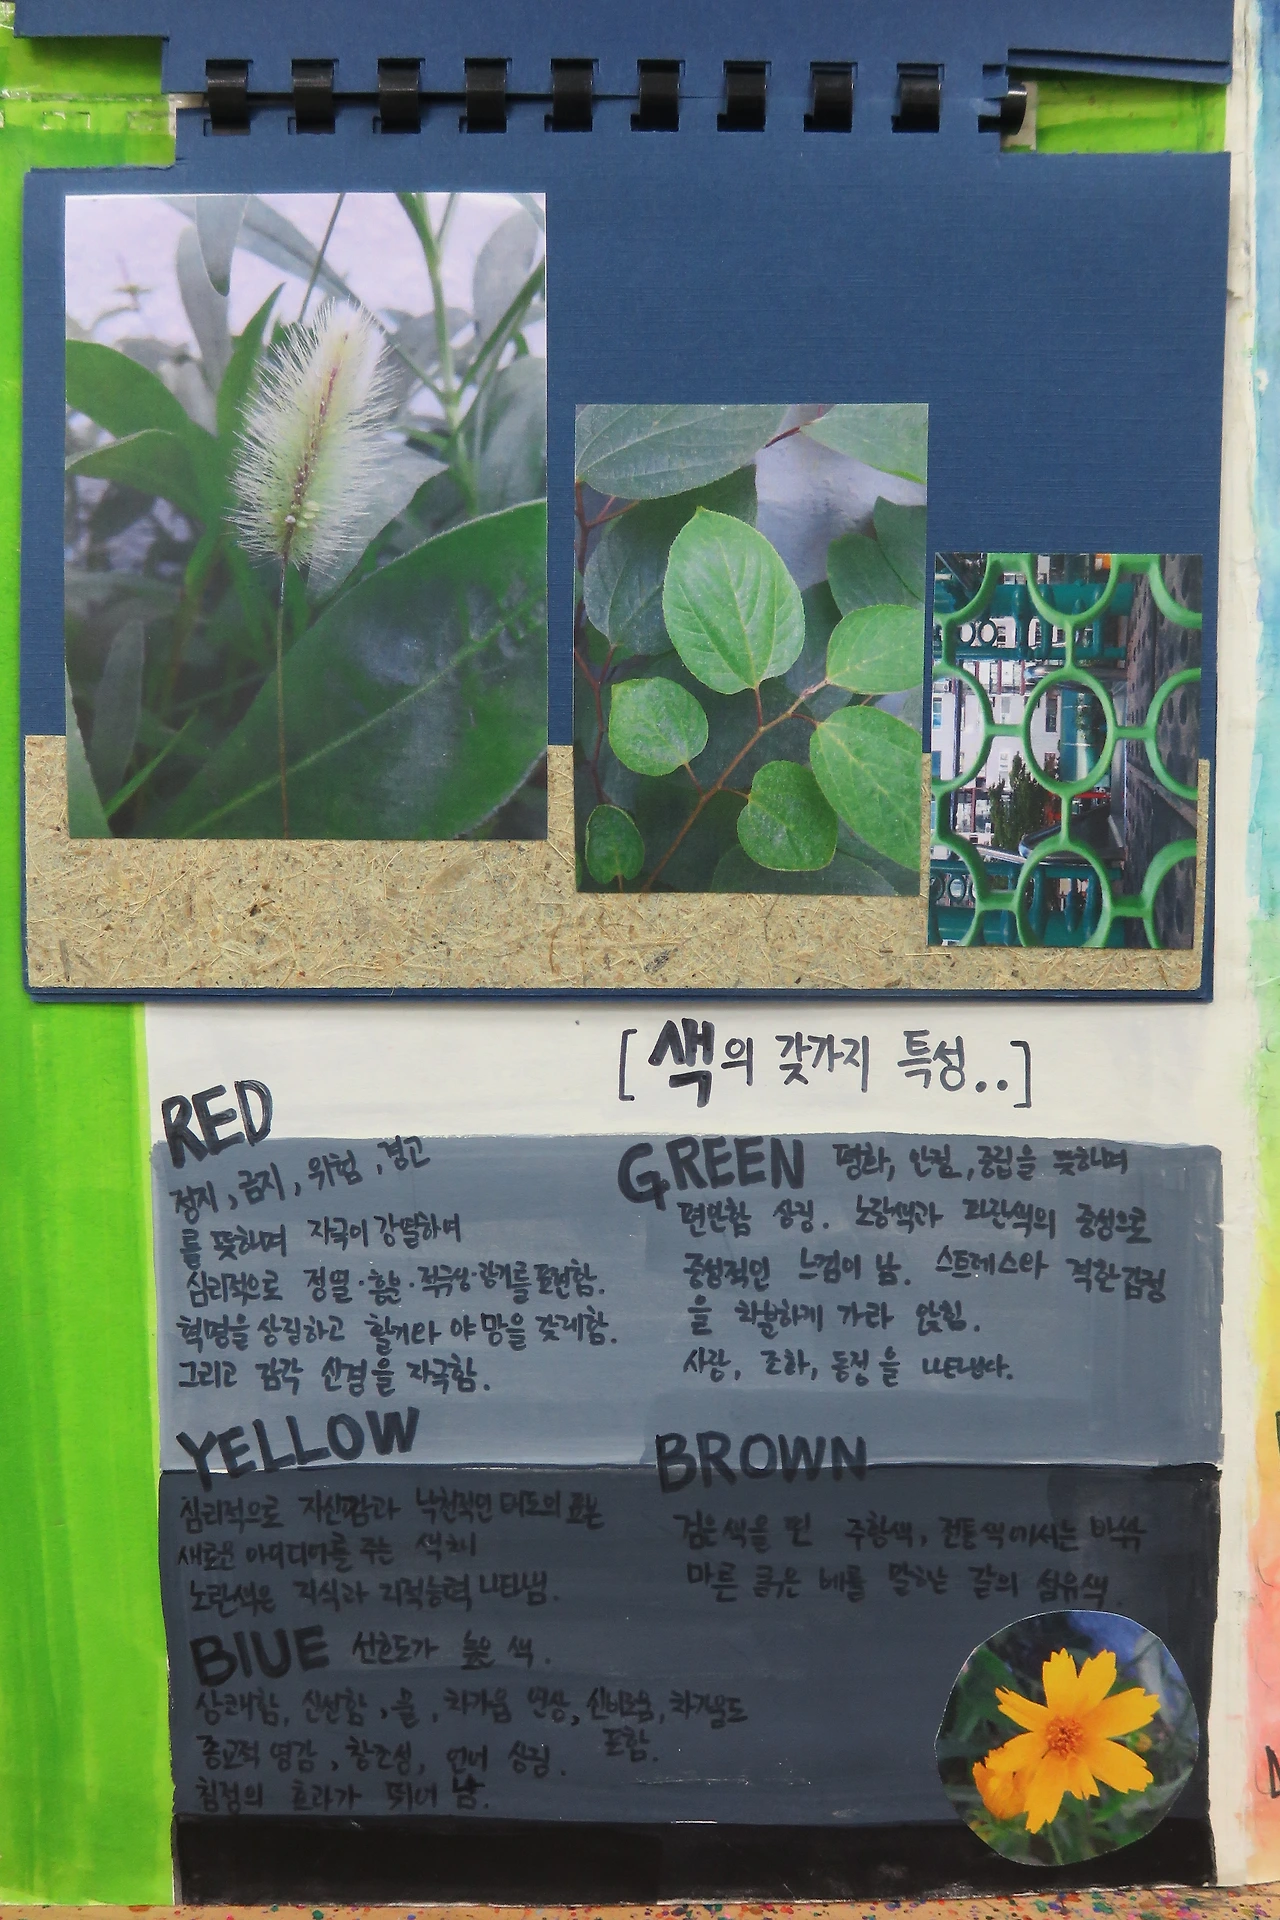 [색의 갖가지 특성..]
RED
정지, 금지, 위험, 경고
를 뜻하며 자극이 강렬하며
심리적으로 정열·흥분·적극성·광기를 표현함.
혁명을 상징하고 활기와 야망을 갖게함.
그리고 감각 신경을 자극함.
GREEN 평화, 안전, 중립을 뜻하며
편안함 상징. 노랑색과 파란색의 중성으로
중성적인 느낌이 남. 스트레스와 격한감정
을 차분하게 가라 앉힘.
사랑, 조화, 동정을 나타낸다.
YELLOW
심리적으로 자신감과 낙천적인 태도의 표본
새로운 아이디어를 주는 색채
노란색은 지식과 지적능력 나타냄.
BROWN
검은색을 띤 주황색, 전통색에서는 바싹
마른 굵은 베를 말하는 갈의 섬유색.
BlUE 선호도가 높은 색.
상쾌함, 신선함, 물, 차가움 연상, 신비로움, 차가움도
포함.
종교적 영감, 창조성, 언어 상징.
침정의 효과가 뛰어 남.